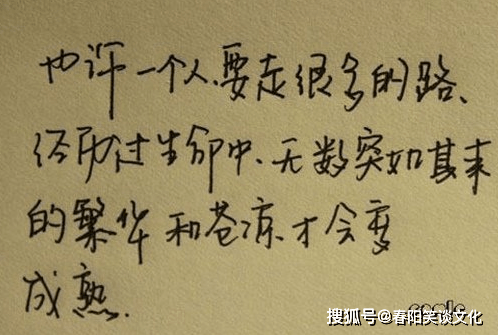 也许一个人,要走很多的路、
经历过生命中、无数突如其来
的繁华和苍凉.才会变
成熟.
搜狐号@春阳笑谈文化